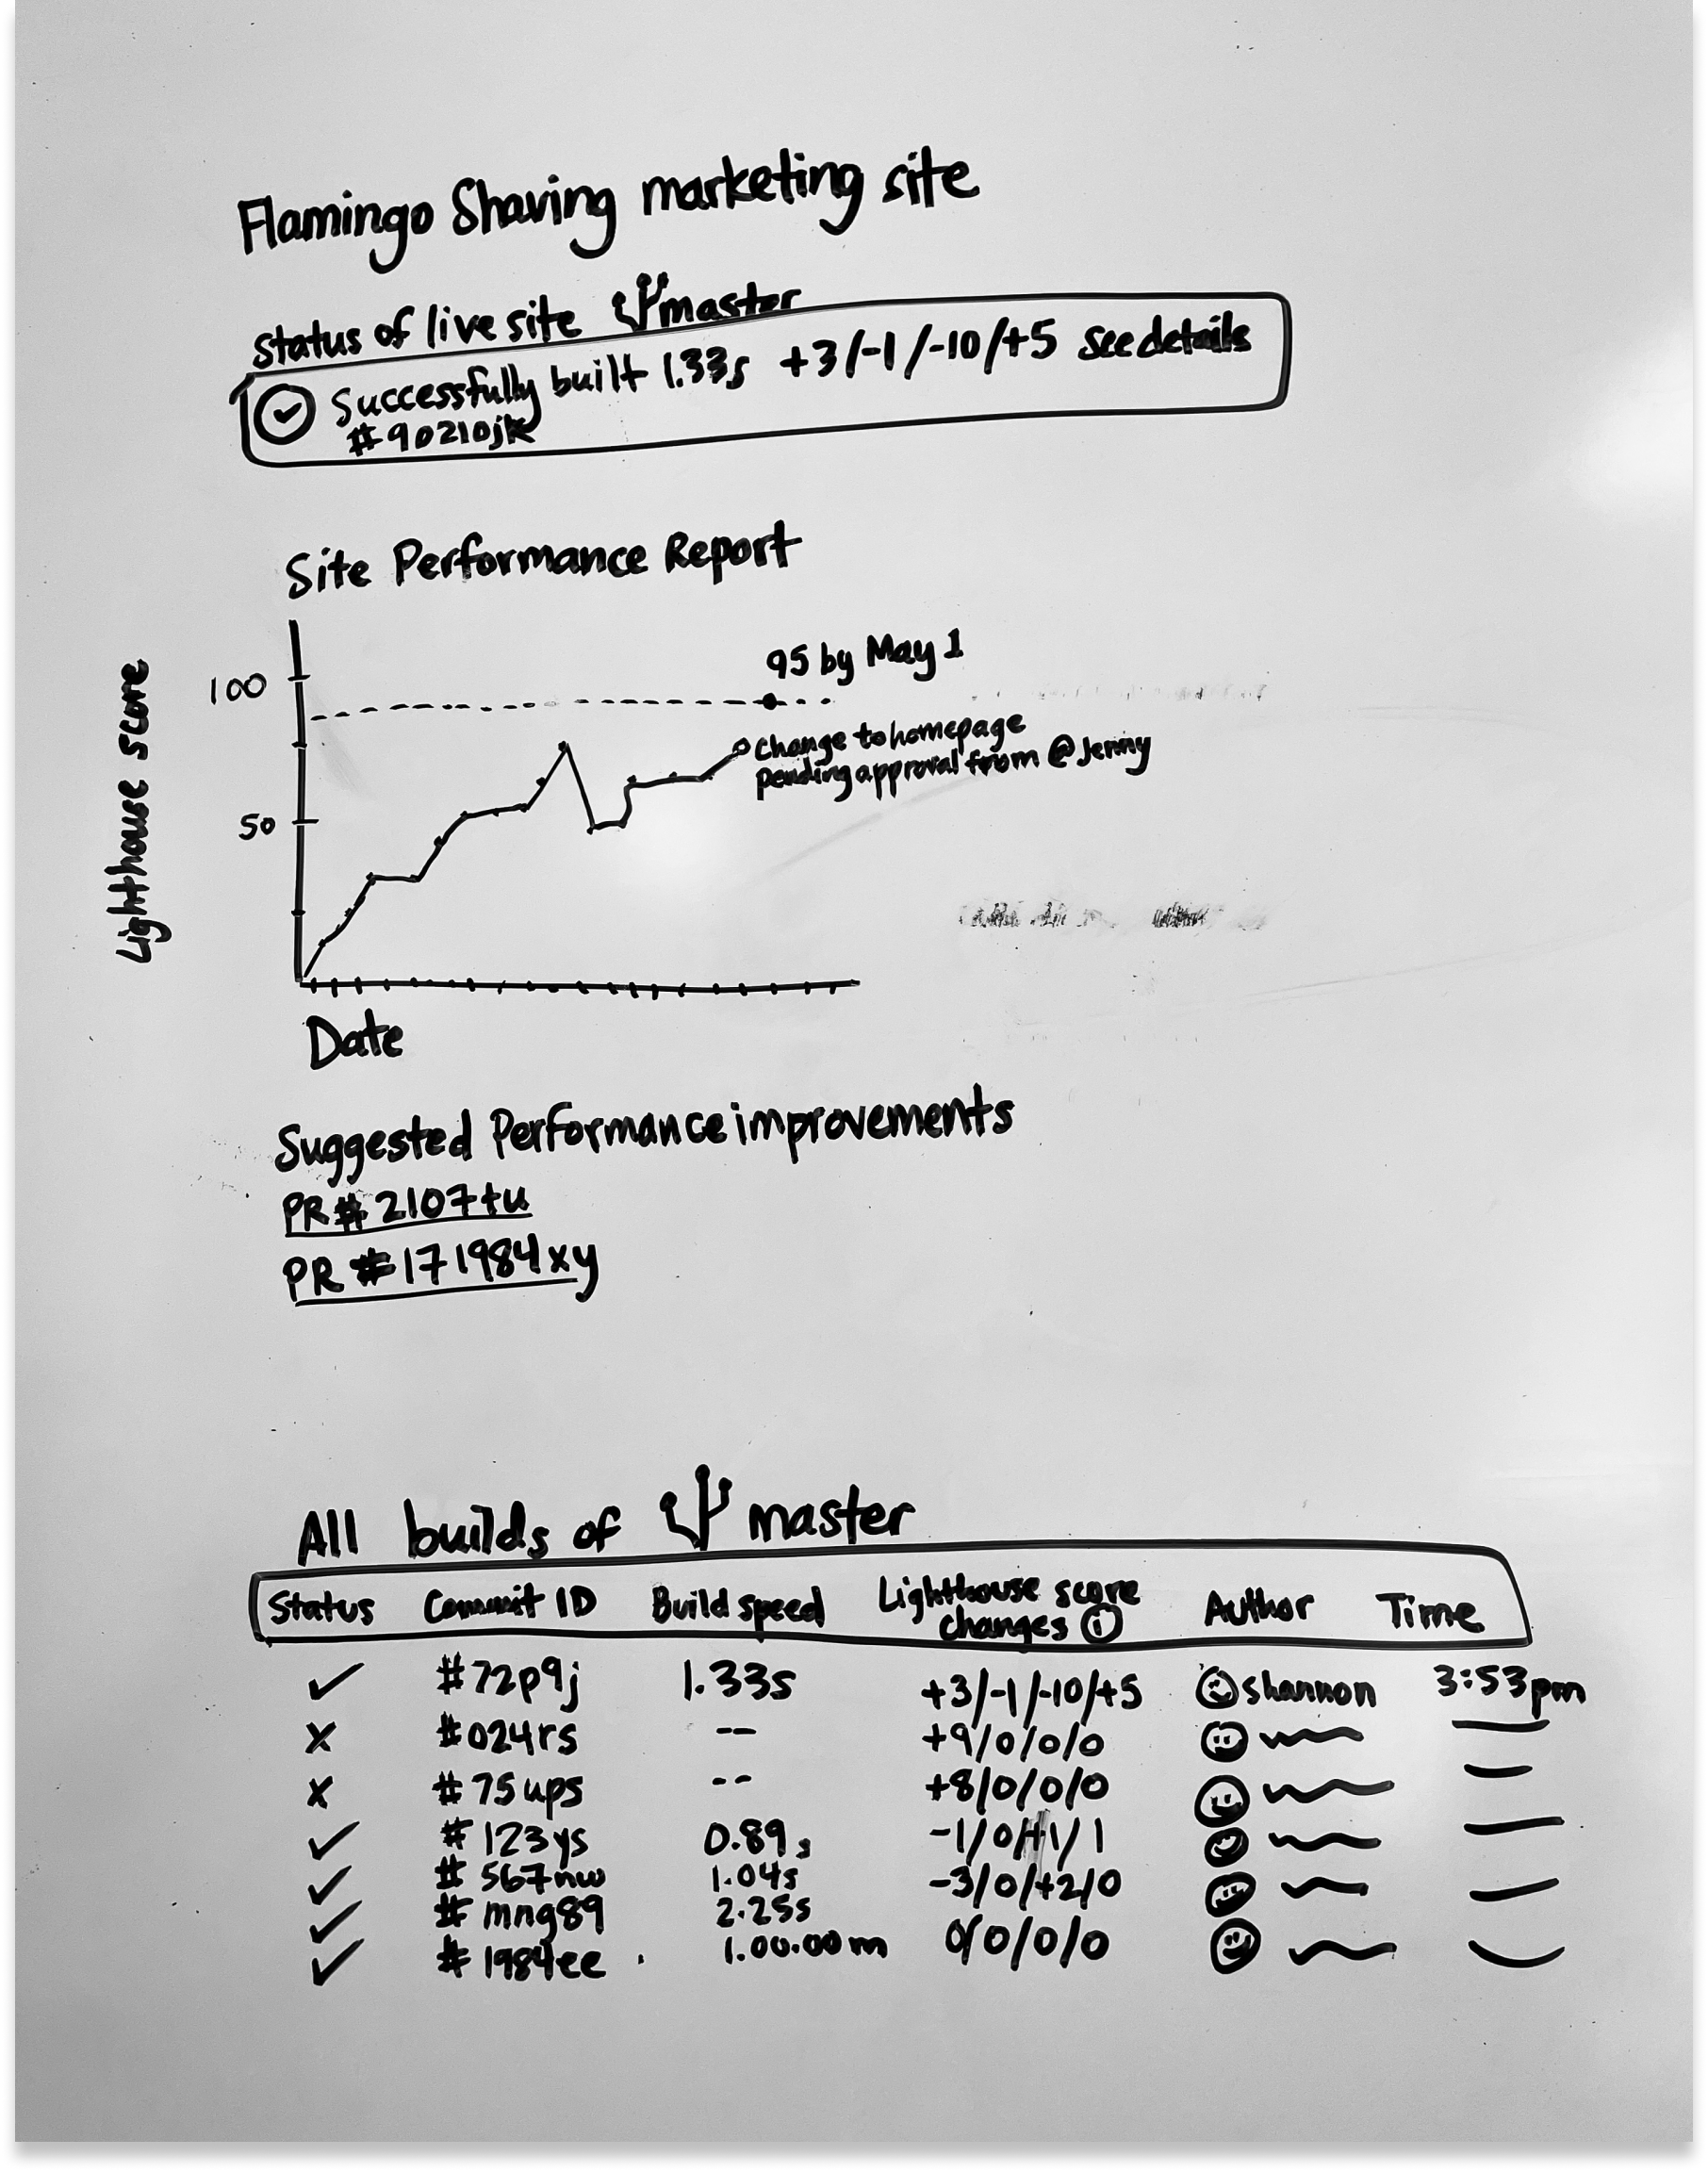 Flamingo Shaving marketing site
Status of live site master
Successfully built 1.33s +3/-1/-10/+5 See details
#90210jk
Site Performance Report
Lighthouse score
100
50
95 by May 1
Change to homepage
pending approval from @Jenny
Date
Suggested Performance improvements
PR#2107tu
PR #171984xy
All builds of master
Status Commit ID Build speed Lighthouse score changes i Author Time
#72p9j 1.33s +3/-1/-10/+5 shannon 3:53pm
x #024rs -- +9/0/0/0
x #75ups -- +8/0/0/0
#123ys 0.89s -1/0/+1/1
#567nw 1.04s -3/0/+2/0
#mng89 2.25s
#1984ee 1.00.00m 0/0/0/0